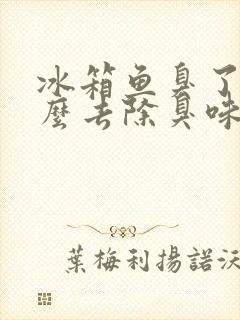 冰箱鱼臭了
麼去除臭味
葉梅利揚諾沃